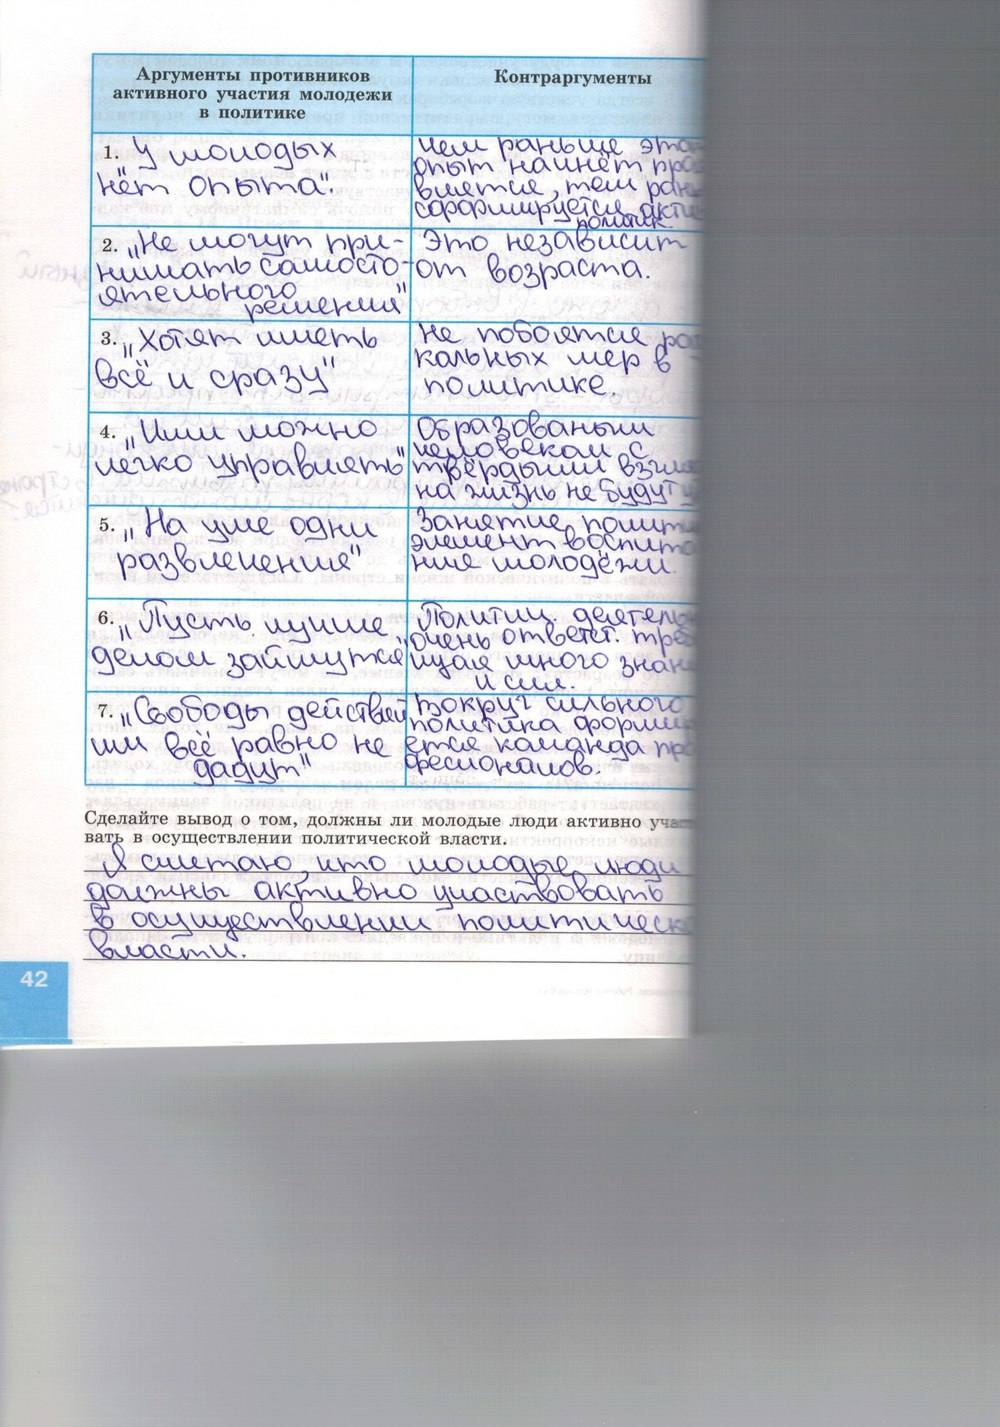 Аргументы противников
активного участия молодежи
в политике
Контраргументы
1. "У молодых
нет опыта".
чем раньше этот
опыт начнёт
вляется, тем
сформируется
политик.
2. "Не могут при-
нимать самосто-
ятельного
решения"
Это независит
от возраста.
3. "Хотят иметь
всё и сразу"
не побоятся
кальных мер в
политике.
4. "Ими можно
легко управлять"
Образованым
человекам с
твёрдыми
на жизнь не будут
5. "На уме одни
развлечения"
Занятие
элемент
ние молодёжи.
6. "Пусть лучше
делом займутся"
Политич.
очень ответст.
щая много
и сил.
7. "Свободы действий
им всё равно не
дадут"
Вокруг сильного
политика
ется команда
фесионалов.
Сделайте вывод о том, должны ли молодые люди активно участ
вать в осуществлении политической власти.
Я считаю, что молодые люди
должны активно участвовать
в осуществлении политическо
власти.
42